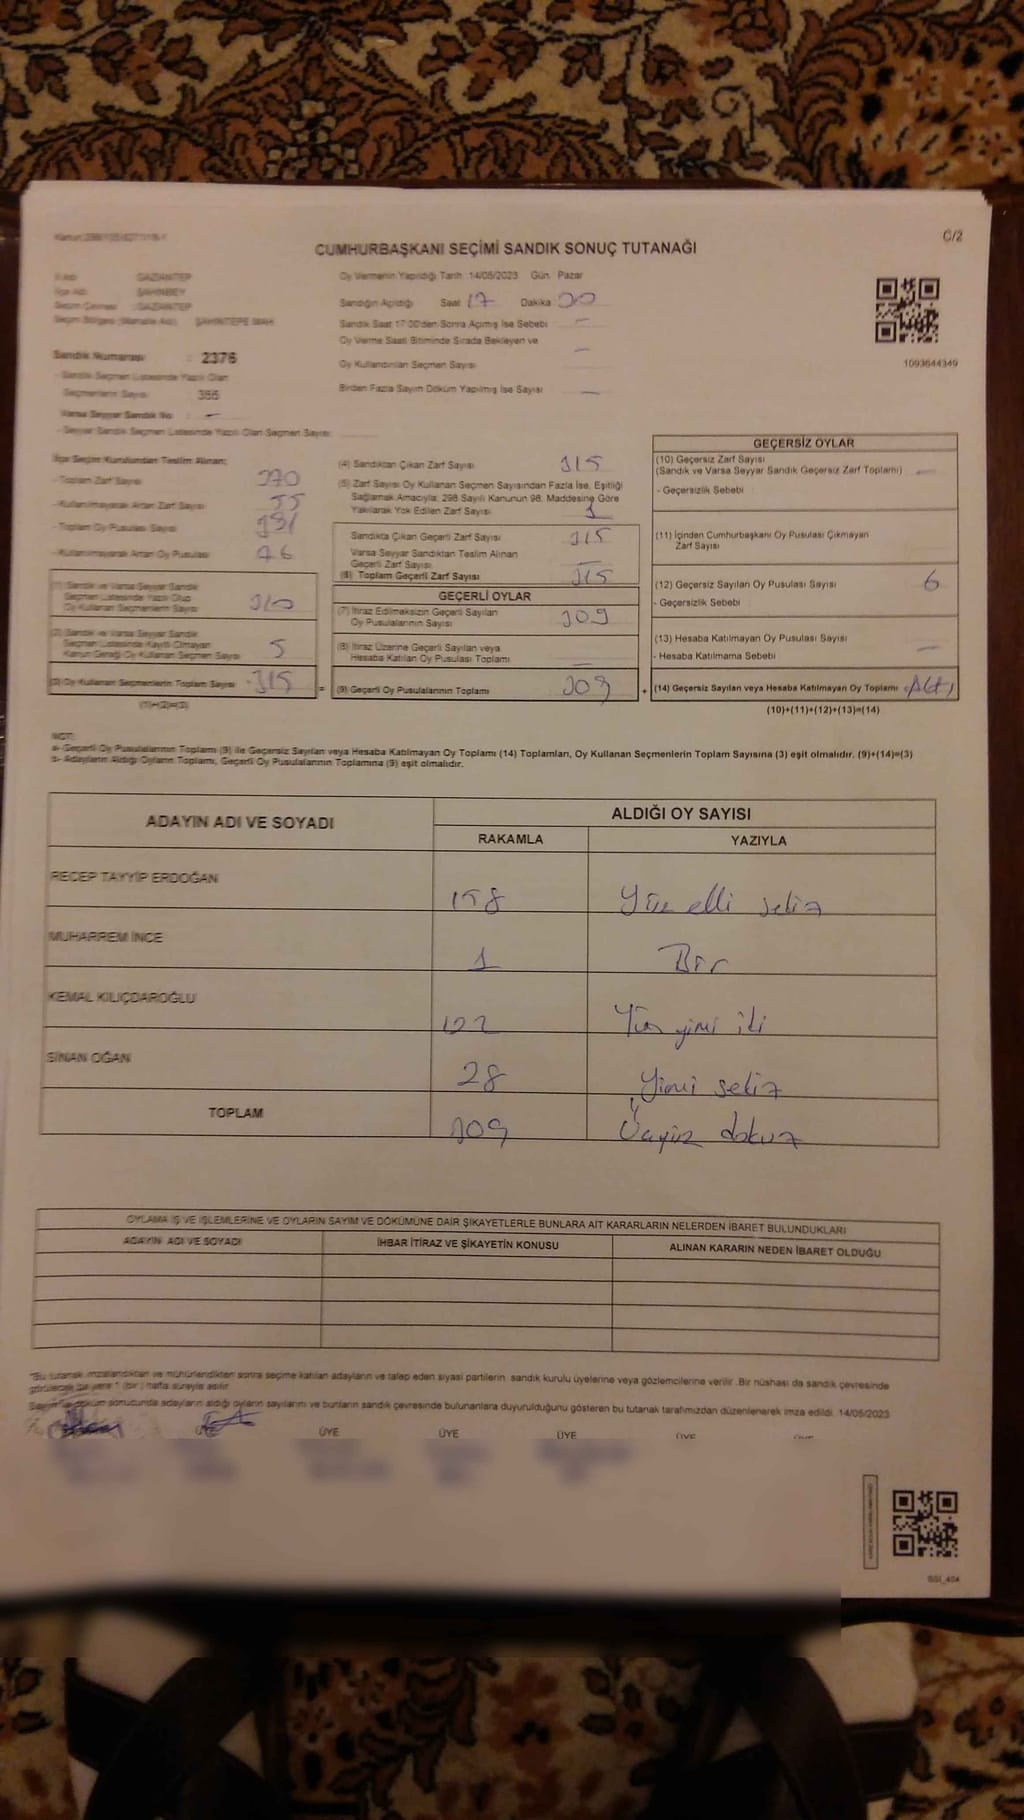 C/2
CUMHURBAŞKANI SEÇİMİ SANDIK SONUÇ TUTANAĞI
GAZİANTEP
Oy Vermenin Yapıldığı Tarih :14/05/2023 Gün Pazar
ŞAHİNBEY
Sandığın Açıldığı Saat 17 Dakika 00
GAZİANTEP
ŞAHİNTEPE MAH
Sandık Saat 17:00'den Sonra Açımış İse Sebebi —
Oy Verme Saati Bitiminde Sırada Bekleyen ve
Oy Kullandırılan Seçmen Sayısı —
Birden Fazla Sayım Döküm Yapılmış İse Sayısı —
1093644349
Sandık Numarası : 2376
- Sandık Seçmen Listesinde Yazılı Olan
Seçmenlerin Sayısı
Varsa Seyyar Sandık No : —
- Seyyar Sandık Seçmen Listesinde Yazılı Olan Seçmen Sayısı
İlçe Seçim Kurulundan Teslim Alınan:
- Toplam Zarf Sayısı 370
- Kullanılmayarak Artan Zarf Sayısı 55
- Toplam Oy Pusulası Sayısı 391
- Kullanılmayarak Artan Oy Pusulası 76
(1) Sandık ve Varsa Seyyar Sandık
Seçmen Listesinde Yazılı Olup
Oy Kullanan Seçmenlerin Sayısı 310
(2) Sandık ve Varsa Seyyar Sandık
Seçmen Listesinde Kayıtlı Olmayan
Kanun Gereği Oy Kullanan Seçmen Sayısı 5
(3) Oy Kullanan Seçmenlerin Toplam Sayısı 315 =
(1)+(2)=(3)
(4) Sandıktan Çıkan Zarf Sayısı 315
(5) Zarf Sayısı Oy Kullanan Seçmen Sayısından Fazla İse, Eşitliği
Sağlamak Amacıyla, 298 Sayılı Kanunun 98. Maddesine Göre
Yakılarak Yok Edilen Zarf Sayısı
Sandıkta Çıkan Geçerli Zarf Sayısı 315
Varsa Seyyar Sandıktan Teslim Alınan
Geçerli Zarf Sayısı
(6) Toplam Geçerli Zarf Sayısı 315
GEÇERLİ OYLAR
(7) İtiraz Edilmeksizin Geçerli Sayılan
Oy Pusulalarının Sayısı 309
(8) İtiraz Üzerine Geçerli Sayılan veya
Hesaba Katılan Oy Pusulası Toplamı —
(9) Geçerli Oy Pusulalarının Toplamı 309 +
GEÇERSİZ OYLAR
(10) Geçersiz Zarf Sayısı
(Sandık ve Varsa Seyyar Sandık Geçersiz Zarf Toplamı) —
- Geçersizlik Sebebi
(11) İçinden Cumhurbaşkanı Oy Pusulası Çıkmayan
Zarf Sayısı
(12) Geçersiz Sayılan Oy Pusulası Sayısı 6
- Geçersizlik Sebebi
(13) Hesaba Katılmayan Oy Pusulası Sayısı —
- Hesaba Katılmama Sebebi
(14) Geçersiz Sayılan veya Hesaba Katılmayan Oy Toplamı Altı
(10)+(11)+(12)+(13)=(14)
NOT:
a- Geçerli Oy Pusulalarının Toplamı (9) ile Geçersiz Sayılan veya Hesaba Katılmayan Oy Toplamı (14) Toplamları, Oy Kullanan Seçmenlerin Toplam Sayısına (3) eşit olmalıdır. (9)+(14)=(3)
b- Adayların Aldığı Oyların Toplamı, Geçerli Oy Pusulalarının Toplamına (9) eşit olmalıdır.
ADAYIN ADI VE SOYADI
ALDIĞI OY SAYISI
RAKAMLA YAZIYLA
RECEP TAYYİP ERDOĞAN 158 Yüz elli sekiz
MUHARREM İNCE 1 Bir
KEMAL KILIÇDAROĞLU 122 Yüz yirmi iki
SİNAN OĞAN 28 Yirmi sekiz
TOPLAM 309 Üçyüz dokuz
OYLAMA İŞ VE İŞLEMLERİNE VE OYLARIN SAYIM VE DÖKÜMÜNE DAİR ŞİKAYETLERLE BUNLARA AİT KARARLARIN NELERDEN İBARET BULUNDUKLARI
ADAYIN ADI VE SOYADI İHBAR İTİRAZ VE ŞİKAYETİN KONUSU ALINAN KARARIN NEDEN İBARET OLDUĞU
"Bu tutanak imzalandıktan ve mühürlendikten sonra seçime katılan adayların ve talep eden siyasi partilerin sandık kurulu üyelerine veya gözlemcilerine verilir. Bir nüshası da sandık çevresinde
görülecek bir yere 1 (bir) hafta süreyle asılır.
Sayım ve döküm sonucunda adayların aldığı oyların sayılarını ve bunların sandık çevresinde bulunanlara duyurulduğunu gösteren bu tutanak tarafımızdan düzenlenerek imza edildi. 14/05/2023
ÜYE ÜYE ÜYE ÜYE ÜYE